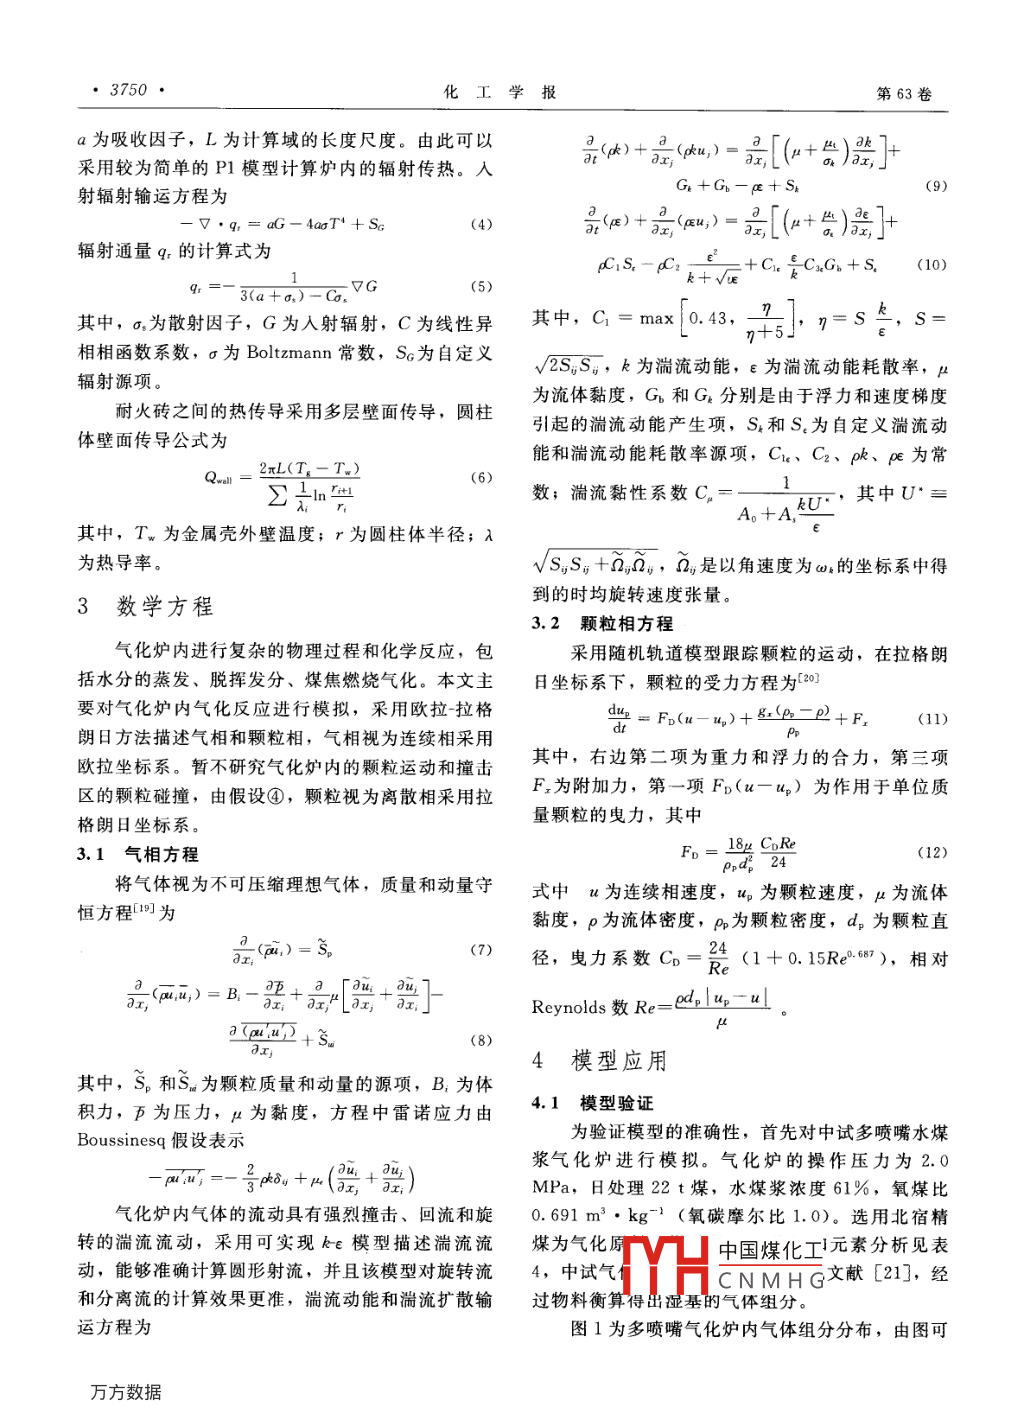 · 3750 ·
化 工 学 报
第 63 卷
a 为吸收因子，L 为计算域的长度尺度。由此可以
采用较为简单的 P1 模型计算炉内的辐射传热。入
射辐射输运方程为
−▽·qᵣ = aG − 4aσT⁴ + S_G (4)
辐射通量 qᵣ 的计算式为
qᵣ = − 1/(3(a+σₛ) − Cσₛ) ▽G (5)
其中，σₛ为散射因子，G 为入射辐射，C 为线性异
相相函数系数，σ 为 Boltzmann 常数，S_G为自定义
辐射源项。
耐火砖之间的热传导采用多层壁面传导，圆柱
体壁面传导公式为
Q_wall = 2πL(T_g − T_w) / ∑ (1/λᵢ) ln (rᵢ₊₁/rᵢ) (6)
其中，T_w 为金属壳外壁温度；r 为圆柱体半径；λ
为热导率。
3 数学方程
气化炉内进行复杂的物理过程和化学反应，包
括水分的蒸发、脱挥发分、煤焦燃烧气化。本文主
要对气化炉内气化反应进行模拟，采用欧拉-拉格
朗日方法描述气相和颗粒相，气相视为连续相采用
欧拉坐标系。暂不研究气化炉内的颗粒运动和撞击
区的颗粒碰撞，由假设④，颗粒视为离散相采用拉
格朗日坐标系。
3.1 气相方程
将气体视为不可压缩理想气体，质量和动量守
恒方程[19]为
∂/∂xᵢ (ρ̄ũᵢ) = S̃ₚ (7)
∂/∂xⱼ (ρ̄ūᵢūⱼ) = Bᵢ − ∂p̄/∂xᵢ + ∂/∂xⱼ μ[∂ũᵢ/∂xⱼ + ∂ũⱼ/∂xᵢ] −
∂(ρu′ᵢu′ⱼ)/∂xⱼ + S̃_ui (8)
其中，S̃ₚ 和S̃_ui为颗粒质量和动量的源项，Bᵢ 为体
积力，p̄ 为压力，μ 为黏度，方程中雷诺应力由
Boussinesq 假设表示
−ρu′ᵢu′ⱼ = − 2/3 ρkδᵢⱼ + μₜ(∂ũᵢ/∂xⱼ + ∂ũⱼ/∂xᵢ)
气化炉内气体的流动具有强烈撞击、回流和旋
转的湍流流动，采用可实现 k-ε 模型描述湍流流
动，能够准确计算圆形射流，并且该模型对旋转流
和分离流的计算效果更准，湍流动能和湍流扩散输
运方程为
∂/∂t (ρk) + ∂/∂xⱼ (ρkuⱼ) = ∂/∂xⱼ [(μ + μₜ/σₖ) ∂k/∂xⱼ] +
Gₖ + G_b − ρε + Sₖ (9)
∂/∂t (ρε) + ∂/∂xⱼ (ρεuⱼ) = ∂/∂xⱼ [(μ + μₜ/σ_ε) ∂ε/∂xⱼ] +
ρC₁S_ε − ρC₂ ε²/(k+√(υε)) + C₁ε (ε/k) C₃εG_b + S_ε (10)
其中，C₁ = max[0.43, η/(η+5)]，η = S k/ε，S =
√(2SᵢⱼSᵢⱼ)，k 为湍流动能，ε 为湍流动能耗散率，μ
为流体黏度，G_b 和 Gₖ 分别是由于浮力和速度梯度
引起的湍流动能产生项，Sₖ和 S_ε为自定义湍流动
能和湍流动能耗散率源项，C₁ε、C₂、ρk、ρε 为常
数；湍流黏性系数 C_μ = 1/(A₀ + Aₛ kU*/ε)，其中 U* ≡
√(SᵢⱼSᵢⱼ + Ω̃ᵢⱼΩ̃ᵢⱼ)，Ω̃ᵢⱼ是以角速度为ωₖ的坐标系中得
到的时均旋转速度张量。
3.2 颗粒相方程
采用随机轨道模型跟踪颗粒的运动，在拉格朗
日坐标系下，颗粒的受力方程为[20]
duₚ/dt = F_D(u − uₚ) + gₓ(ρₚ − ρ)/ρₚ + Fₓ (11)
其中，右边第二项为重力和浮力的合力，第三项
Fₓ为附加力，第一项 F_D(u − uₚ) 为作用于单位质
量颗粒的曳力，其中
F_D = 18μ/(ρₚdₚ²) C_DRe/24 (12)
式中 u 为连续相速度，uₚ 为颗粒速度，μ 为流体
黏度，ρ 为流体密度，ρₚ为颗粒密度，dₚ 为颗粒直
径，曳力系数 C_D = 24/Re (1 + 0.15Re^0.687)，相对
Reynolds 数 Re = ρdₚ|uₚ − u|/μ。
4 模型应用
4.1 模型验证
为验证模型的准确性，首先对中试多喷嘴水煤
浆气化炉进行模拟。气化炉的操作压力为 2.0
MPa，日处理 22 t 煤，水煤浆浓度 61%，氧煤比
0.691 m³·kg⁻¹（氧碳摩尔比 1.0）。选用北宿精
煤为气化原 元素分析见表
4，中试气 文献 [21]，经
过物料衡算得出湿基的气体组分。
图 1 为多喷嘴气化炉内气体组分分布，由图可
中国煤化工
CNMHG
万方数据